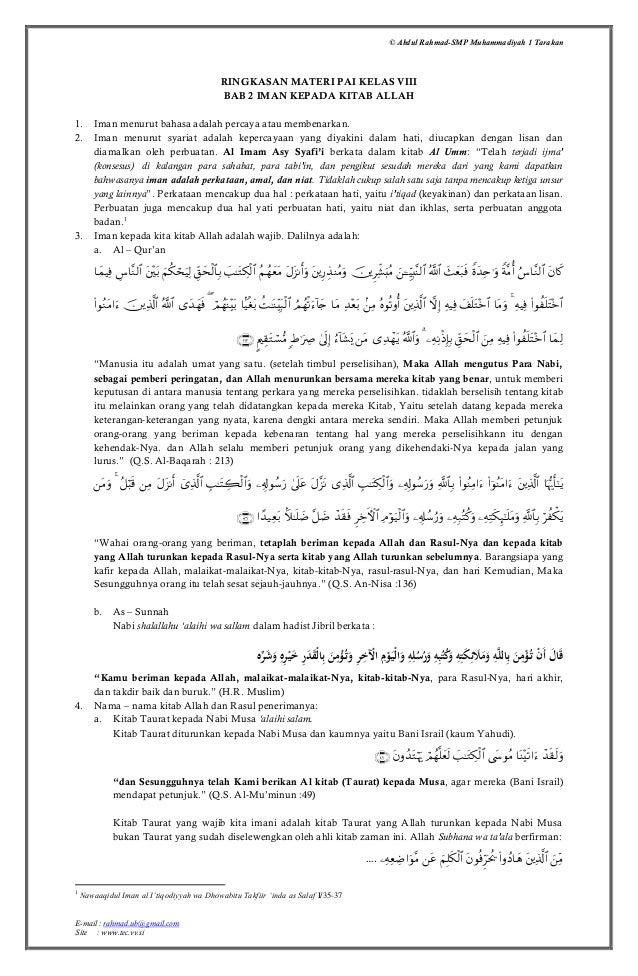 © Abdul Rahmad-SMP Muhammadiyah 1 Tarakan
RINGKASAN MATERI PAI KELAS VIII
BAB 2 IMAN KEPADA KITAB ALLAH
1. Iman menurut bahasa adalah percaya atau membenarkan.
2. Iman menurut syariat adalah kepercayaan yang diyakini dalam hati, diucapkan dengan lisan dan
diamalkan oleh perbuatan. Al Imam Asy Syafi'i berkata dalam kitab Al Umm: “Telah terjadi ijma'
(konsesus) di kalangan para sahabat, para tabi'in, dan pengikut sesudah mereka dari yang kami dapatkan
bahwasanya iman adalah perkataan, amal, dan niat. Tidaklah cukup salah satu saja tanpa mencakup ketiga unsur
yang lainnya”. Perkataan mencakup dua hal : perkataan hati, yaitu i'tiqad (keyakinan) dan perkataan lisan.
Perbuatan juga mencakup dua hal yati perbuatan hati, yaitu niat dan ikhlas, serta perbuatan anggota
badan.1
3. Iman kepada kita kitab Allah adalah wajib. Dalilnya adalah:
a. Al – Qur'an
كَانَ ٱلنَّاسُ أُمَّةً وَٰحِدَةً فَبَعَثَ ٱللَّهُ ٱلنَّبِيِّـۧنَ مُبَشِّرِينَ وَمُنذِرِينَ وَأَنزَلَ مَعَهُمُ ٱلْكِتَـٰبَ بِٱلْحَقِّ لِيَحْكُمَ بَيْنَ ٱلنَّاسِ فِيمَا
ٱخْتَلَفُوا۟ فِيهِ ۚ وَمَا ٱخْتَلَفَ فِيهِ إِلَّا ٱلَّذِينَ أُوتُوهُ مِنۢ بَعْدِ مَا جَآءَتْهُمُ ٱلْبَيِّنَـٰتُ بَغْيًۢا بَيْنَهُمْ ۖ فَهَدَى ٱللَّهُ ٱلَّذِينَ ءَامَنُوا۟
لِمَا ٱخْتَلَفُوا۟ فِيهِ مِنَ ٱلْحَقِّ بِإِذْنِهِۦ ۗ وَٱللَّهُ يَهْدِى مَن يَشَآءُ إِلَىٰ صِرَٰطٍ مُّسْتَقِيمٍ ﴿٢١٣﴾
“Manusia itu adalah umat yang satu. (setelah timbul perselisihan), Maka Allah mengutus Para Nabi,
sebagai pemberi peringatan, dan Allah menurunkan bersama mereka kitab yang benar, untuk memberi
keputusan di antara manusia tentang perkara yang mereka perselisihkan. tidaklah berselisih tentang kitab
itu melainkan orang yang telah didatangkan kepada mereka Kitab, Yaitu setelah datang kepada mereka
keterangan-keterangan yang nyata, karena dengki antara mereka sendiri. Maka Allah memberi petunjuk
orang-orang yang beriman kepada kebenaran tentang hal yang mereka perselisihkann itu dengan
kehendak-Nya. dan Allah selalu memberi petunjuk orang yang dikehendaki-Nya kepada jalan yang
lurus.” (Q.S. Al-Baqarah : 213)
يَـٰٓأَيُّهَا ٱلَّذِينَ ءَامَنُوٓا۟ ءَامِنُوا۟ بِٱللَّهِ وَرَسُولِهِۦ وَٱلْكِتَـٰبِ ٱلَّذِى نَزَّلَ عَلَىٰ رَسُولِهِۦ وَٱلْكِتَـٰبِ ٱلَّذِىٓ أَنزَلَ مِن قَبْلُ ۚ وَمَن
يَكْفُرْ بِٱللَّهِ وَمَلَـٰٓئِكَتِهِۦ وَكُتُبِهِۦ وَرُسُلِهِۦ وَٱلْيَوْمِ ٱلْـَٔاخِرِ فَقَدْ ضَلَّ ضَلَـٰلًۢا بَعِيدًا ﴿١٣٦﴾
“Wahai orang-orang yang beriman, tetaplah beriman kepada Allah dan Rasul-Nya dan kepada kitab
yang Allah turunkan kepada Rasul-Nya serta kitab yang Allah turunkan sebelumnya. Barangsiapa yang
kafir kepada Allah, malaikat-malaikat-Nya, kitab-kitab-Nya, rasul-rasul-Nya, dan hari Kemudian, Maka
Sesungguhnya orang itu telah sesat sejauh-jauhnya.” (Q.S. An-Nisa :136)
b. As – Sunnah
Nabi shalallahu 'alaihi wa sallam dalam hadist Jibril berkata :
قَالَ أَنْ تُؤْمِنَ بِاللَّهِ وَمَلَائِكَتِهِ وَكُتُبِهِ وَرُسُلِهِ وَالْيَوْمِ الْآخِرِ وَتُؤْمِنَ بِالْقَدَرِ خَيْرِهِ وَشَرِّهِ
“Kamu beriman kepada Allah, malaikat-malaikat-Nya, kitab-kitab-Nya, para Rasul-Nya, hari akhir,
dan takdir baik dan buruk.” (H.R. Muslim)
4. Nama – nama kitab Allah dan Rasul penerimanya:
a. Kitab Taurat kepada Nabi Musa 'alaihi salam.
Kitab Taurat diturunkan kepada Nabi Musa dan kaumnya yaitu Bani Israil (kaum Yahudi).
وَلَقَدْ ءَاتَيْنَا مُوسَى ٱلْكِتَـٰبَ لَعَلَّهُمْ يَهْتَدُونَ ﴿٤٩﴾
“dan Sesungguhnya telah Kami berikan Al kitab (Taurat) kepada Musa, agar mereka (Bani Israil)
mendapat petunjuk.” (Q.S. Al-Mu'minun :49)
Kitab Taurat yang wajib kita imani adalah kitab Taurat yang Allah turunkan kepada Nabi Musa
bukan Taurat yang sudah diselewengkan oleh ahli kitab zaman ini. Allah Subhana wa ta'ala berfirman:
مِّنَ ٱلَّذِينَ هَادُوا۟ يُحَرِّفُونَ ٱلْكَلِمَ عَن مَّوَاضِعِهِۦ ....
1 Nawaaqidul Iman al I'tiqodiyyah wa Dhowabitu Takfiir `inda as Salaf I/35-37
E-mail : rahmad.ub@gmail.com
Site : www.tec.vv.si